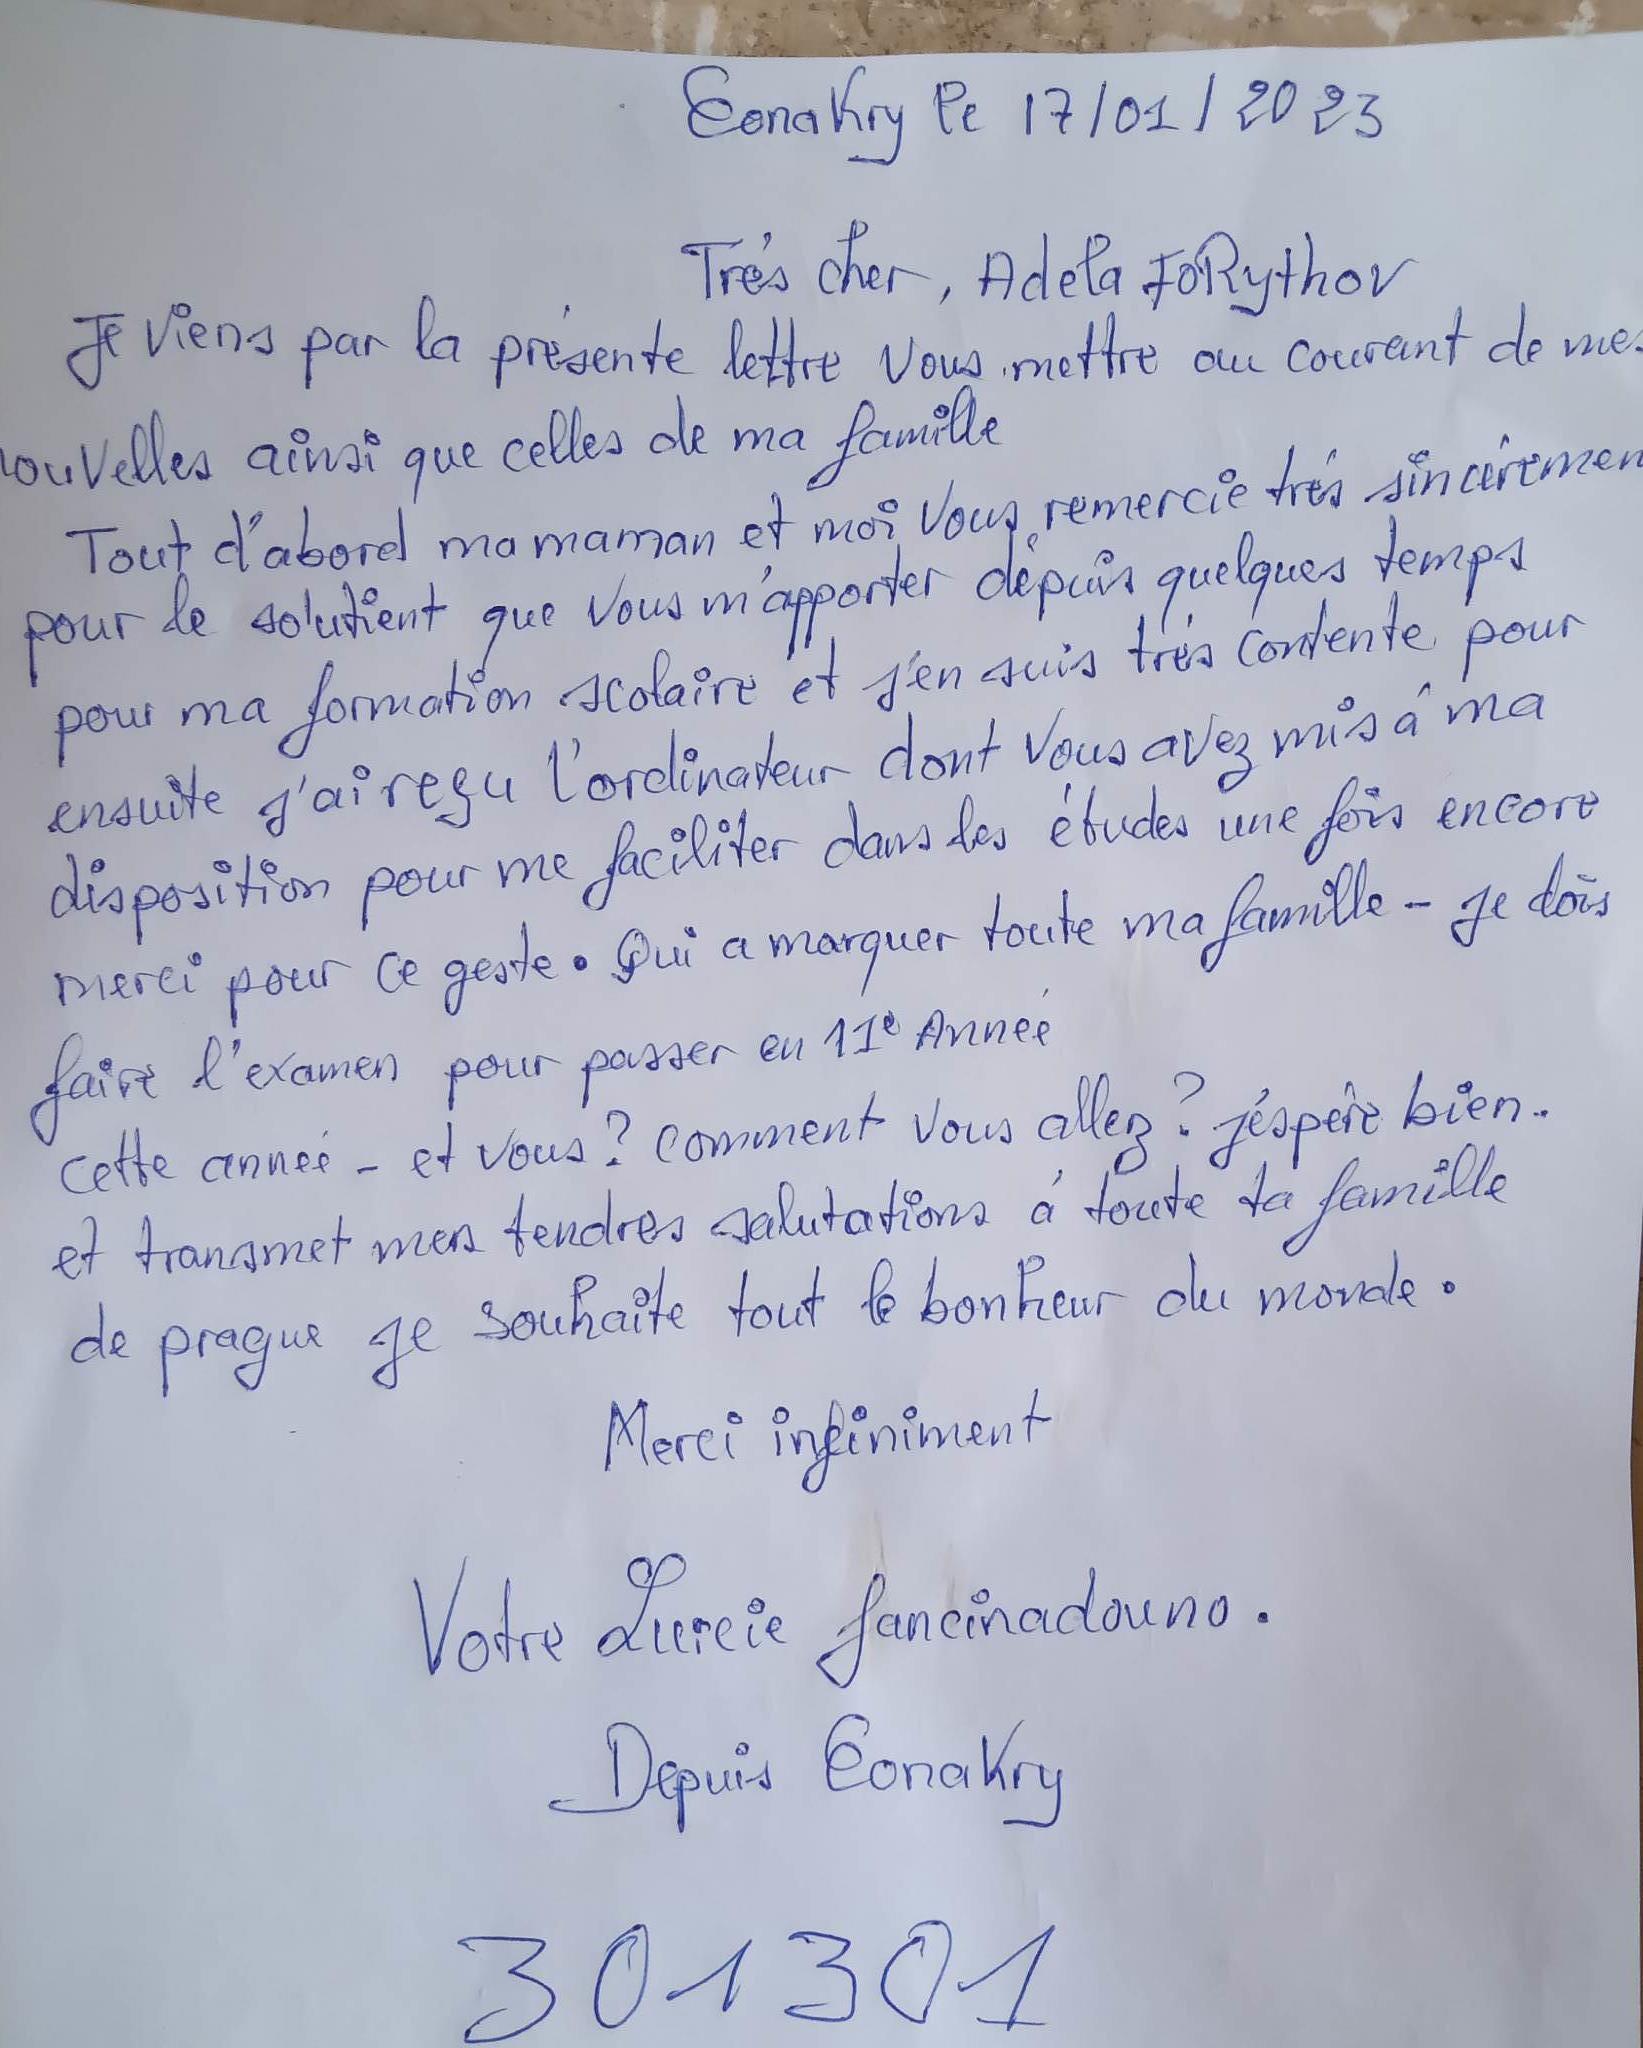 Conakry le 17/01/2023
Trés cher, Adela FoRythov
Je viens par la présente lettre vous mettre au courant de mes
nouvelles ainsi que celles de ma famille
Tout d'abord ma maman et moi vous remercie trés sincéremen
pour le soutient que vous m'apporter dépuis quelques temps
pour ma formation scolaire et j'en suis trés contente pour
ensuite j'ai reçu l'ordinateur dont vous avez mis à ma
disposition pour me faciliter dans les études une fois encore
merci pour ce geste. Qui a marquer toute ma famille - je dois
faire l'examen pour passer en 11e Année
cette année - et vous? comment vous allez? j'éspère bien.
et transmet mes tendres salutations á toute ta famille
de prague je souhaite tout le bonheur du monde.
Merci infiniment
Votre Lucie fancinadouno.
Depuis Conakry
301301